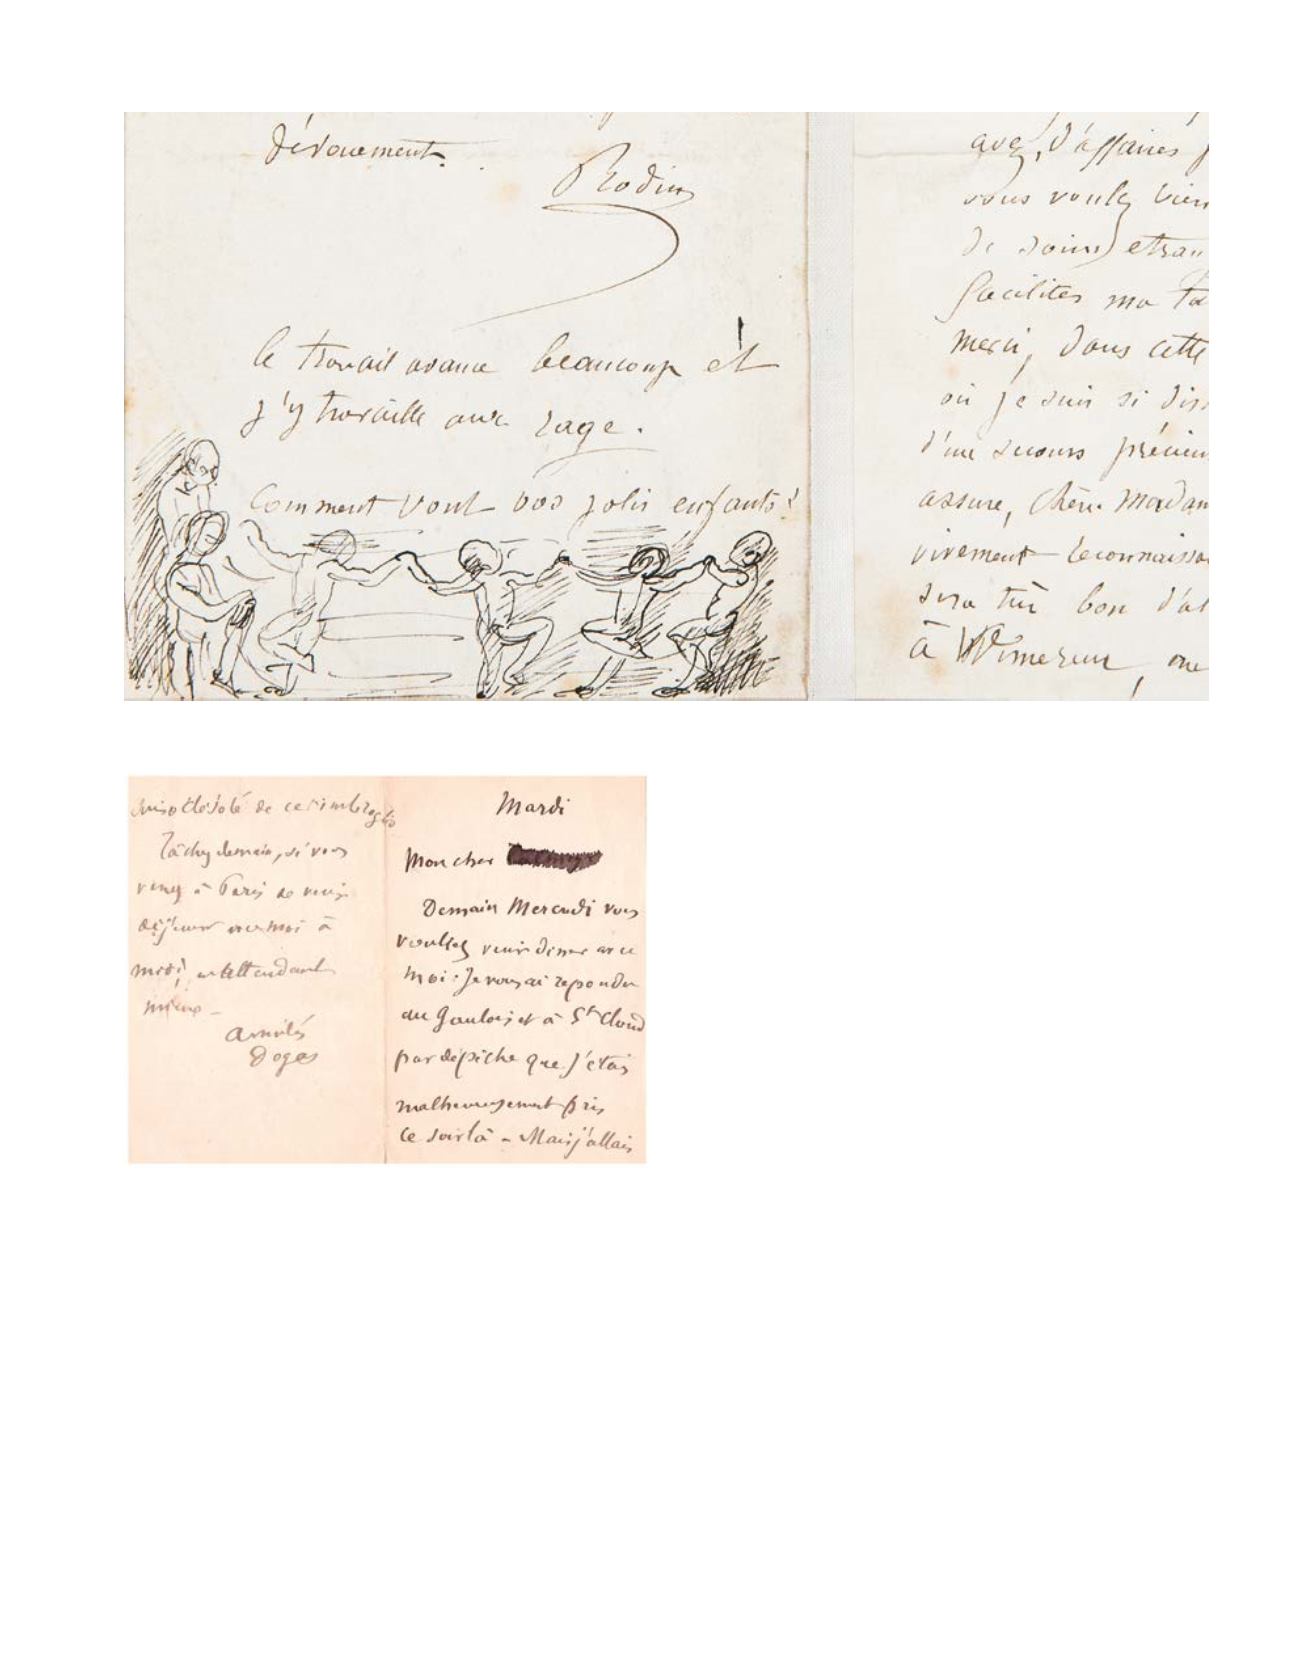 dévouement.
Rodin
le travail avance beaucoup et
j'y travaille avec rage.
Comment vont vos jolis enfants?
avez d'affaires
vous voulez bien
de soins
facilites ma
merci, dans cette
où je suis si
d'un secours
assure, chère Madam
vivement reconnaissa
sera bon
à Wimereux, me
désolé de cet imbroglio
Tâchez demain, si vous
venez à Paris de venir
déjeuner avec moi à
midi, en attendant
mieux -
amitiés
Degas
Mardi
Mon cher
Demain Mercredi vous
vouliez venir diner avec
moi. Je vous ai repondu
au Gaulois et à St Cloud
par depêche que j'étais
malheureusement pris
ce soir là - Mais j'allais